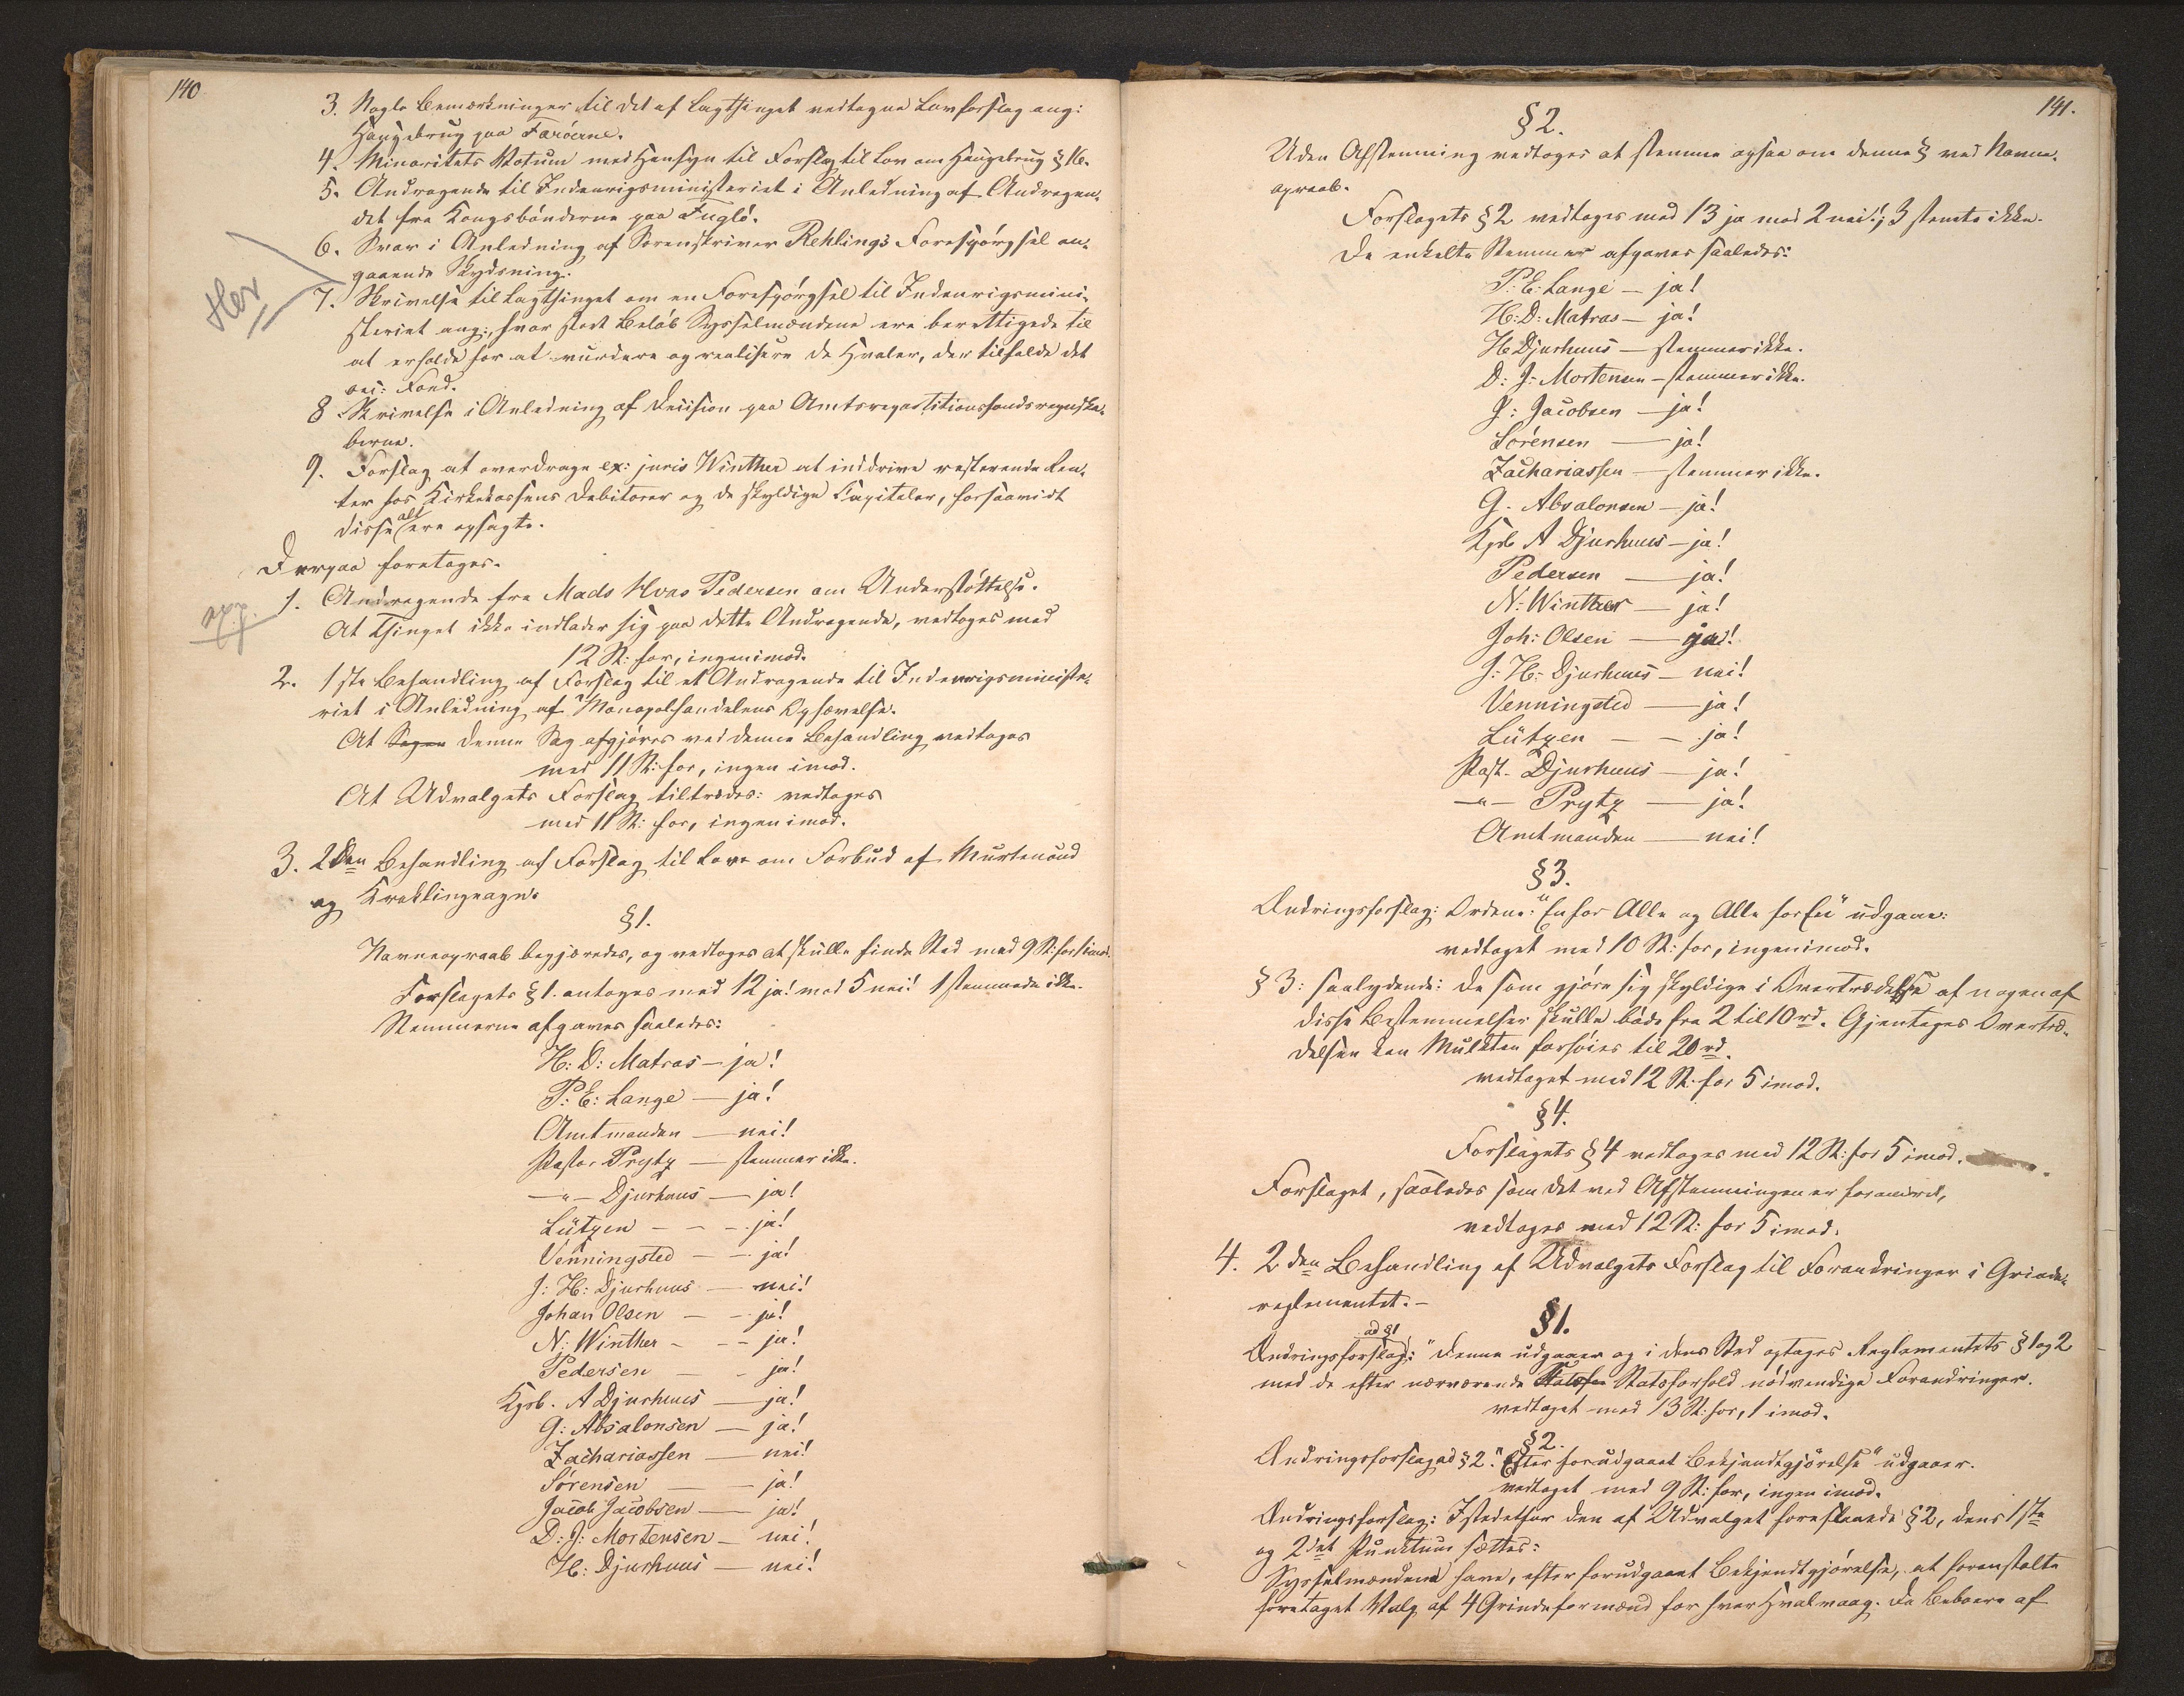 140
3. Nogle Bemærkninger til det af Lagthinget vedtagne Lovforslag ang:
Haugebrug paa Færøerne.
4. Minoritets Votum med Hensyn til Forslag til Lov om Haugebrug § 16.
5. Andragende til Indenrigsministeriet i Anledning af Andragen-
det fra Kongsbønderne paa Fuglø.
6. Svar i Anledning af Sorenskriver Rehlings Forespørgsel an-
gaaende Skydsning.
Her
7. Skrivelse til Lagthinget om en Forespørgsel til Indenrigsmini-
steriet ang:, hvor stort Beløb Sysselmændene ere berettigede til
at erholde for at vurdere og realisere de Hvaler, der tilfalde det
vei: Fond.
8. Skrivelse i Anledning af Decision paa Amtsrepartitionsfondsregnska-
berne.
9. Forslag at overdrage ex: juris Winther at inddrive resterende Ren-
ter hos Kirkekassens Debitorer og de skyldige Capitaler, forsaavidt
disse alt ere opsagte.
Derpaa foretoges.
1. Andragende fra Mads Hvas Pedersen om Understøttelse.
At Thinget ikke indlader sig paa dette Andragende, vedtoges med
12 St: for, ingen imod.
2. 1ste Behandling af Forslag til et Andragende til Indenrigsministe-
riet i Anledning af Monopolhandelens Ophævelse.
At Sagen denne Sag afgjøres ved denne Behandling vedtoges
med 11 St: for, ingen imod.
At Udvalgets Forslag tiltrædes: vedtoges
med 11 St: for, ingen imod.
3. 2den Behandling af Forslag til Lov om Forbud af Murtenaud
og Kræklingeagn.
§ 1.
Navneopraab begjæredes, og vedtoges at skulle finde Sted med 9 St: for 1 imod.
Forslagets § 1. antoges med 12 ja! mod 5 nei! 1 stemmede ikke.
Stemmerne afgaves saaledes:
H: D: Matras — ja!
P: E: Lange — ja!
Amtmanden — nei!
Pastor Prytz — stemmer ikke.
—"— Djurhuus — ja!
Lützen — — — ja!
Venningsted — — ja!
J: H: Djurhuus — nei!
Johan Olsen — — ja!
N: Winther — — ja!
Pedersen — — ja!
Kgsb. A Djurhuus — ja!
G: Absalonsen — ja!
Zachariassen — nei!
Sørensen — — ja!
Jacob Jacobsen — ja!
D: J: Mortensen — nei!
H: Djurhuus — nei!
141.
§ 2.
Uden Afstemning vedtoges at stemme ogsaa om denne § ved Navne-
opraab.
Forslagets § 2 vedtoges med 13 ja mod 2 nei!; 3 stemte ikke.
De enkelte Stemmer afgaves saaledes:
P: E: Lange — ja!
H: D: Matras — ja!
H Djurhuus — stemmer ikke.
D: J: Mortensen — stemmer ikke.
J: Jacobsen — ja!
Sørensen — ja!
Zachariassen — stemmer ikke.
G. Absalonsen — ja!
Kgsb A Djurhuus — ja!
Pedersen — ja!
N: Winther — ja!
Joh: Olsen — ja!
J: H: Djurhuus — nei!
Venningsted — ja!
Lützen — — ja!
Past. Djurhuus — ja!
—"— Prytz — ja!
Amtmanden — nei!
§ 3.
Ændringsforslag: Ordene: "En for Alle og Alle for En" udgaae:
vedtaget med 10 St: for, ingen imod.
§ 3: saalydende: De som gjøre sig skyldige i Overtrædelse af nogen af
disse Bestemmelser skulle bøde fra 2 til 10 rd. Gjentages Overtræ-
delsen kan Mulkten forhøies til 20 rd.
vedtaget med 12 St: for 5 imod.
§ 4.
Forslagets § 4 vedtoges med 12 St: for 5 imod.
Forslaget, saaledes som det ved Afstemningen er forandret,
vedtoges med 12 St: for 5 imod.
4. 2den Behandling af Udvalgets Forslag til Forandringer i Grinde-
reglementet. —
§ 1.
Ændringsforslag ad § 1: "Denne udgaaer og i dens Sted optages Reglementets § 1 og 2
med de efter nærværende Statsfor Statsforhold nødvendige Forandringer.
vedtaget med 13 St: for, 1 imod.
§ 2.
Ændringsforslag ad § 2: "Efter forudgaaet Bekjendtgjørelse" udgaaer.
vedtaget med 9 St: for, ingen imod.
Ændringsforslag: Istedetfor den af Udvalget foreslaaede § 2, dens 1ste
og 2det Punktum sættes:
Sysselmændene have, efter forudgaaet Bekjendtgjørelse, at foranstalte
foretaget Valg af 4 Grindeformænd for hver Hvalvaag. De Beboere af